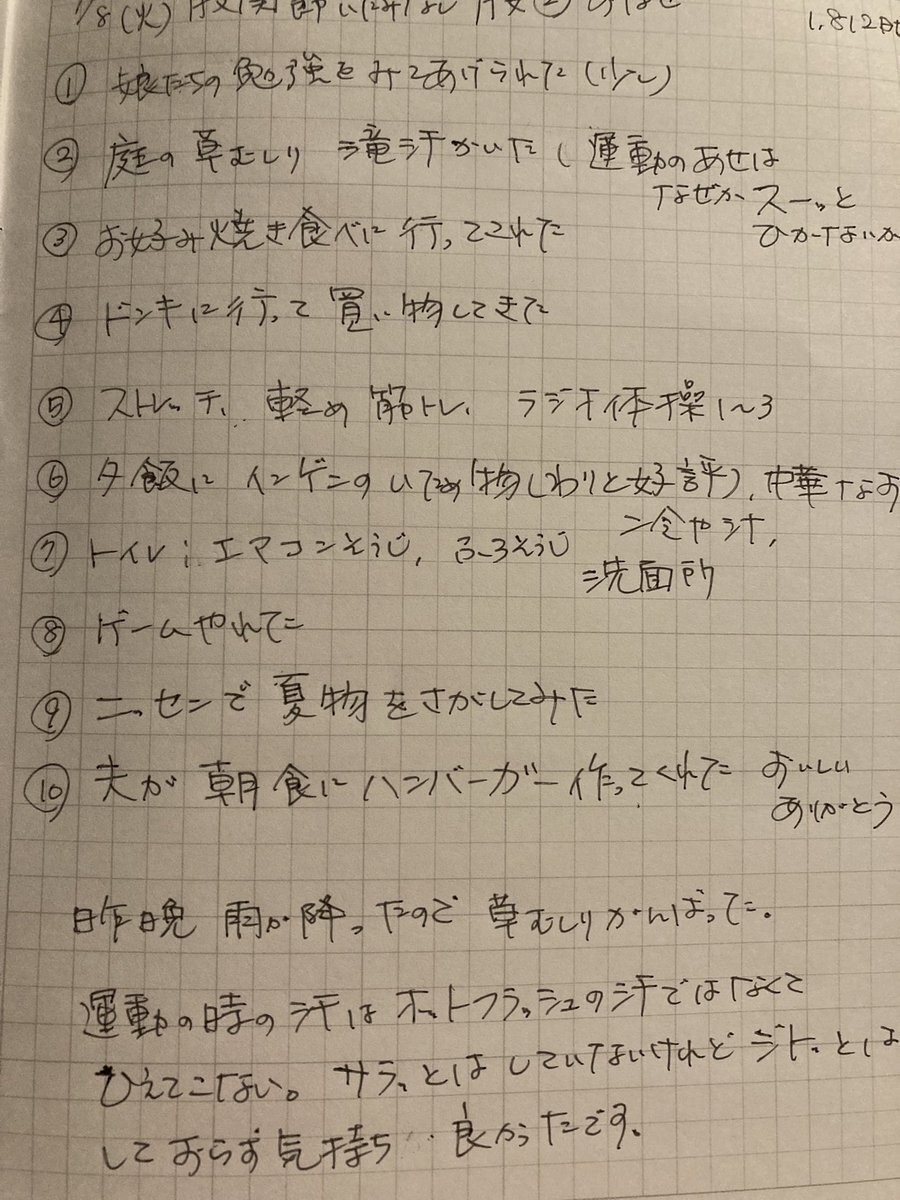 /8(火)
1,812日
① 娘たちの勉強をみてあげられた(少し)
② 庭の草むしり 滝汗かいたし 運動のあせは
なぜか スーッと
ひかないか
③ お好み焼き食べに行ってこれた
④ ドンキに行って買い物してきた
⑤ ストレッチ、軽め筋トレ、ラジオ体操1~3
⑥ 夕飯に インゲンのいため物(わりと好評)、中華なす
冷や汁、
⑦ トイレ、エアコンそうじ、ふろそうじ
洗面所
⑧ ゲームやれた
⑨ ニッセンで夏物をさがしてみた
⑩ 夫が朝食にハンバーガー作ってくれた おいしい
ありがとう
昨晩 雨が降ったので 草むしりがんばった。
運動の時の汗はホットフラッシュの汗ではなくて
ひえてこない。サラッとはしていないけれどジトッとは
しておらず気持ち 良かったです。